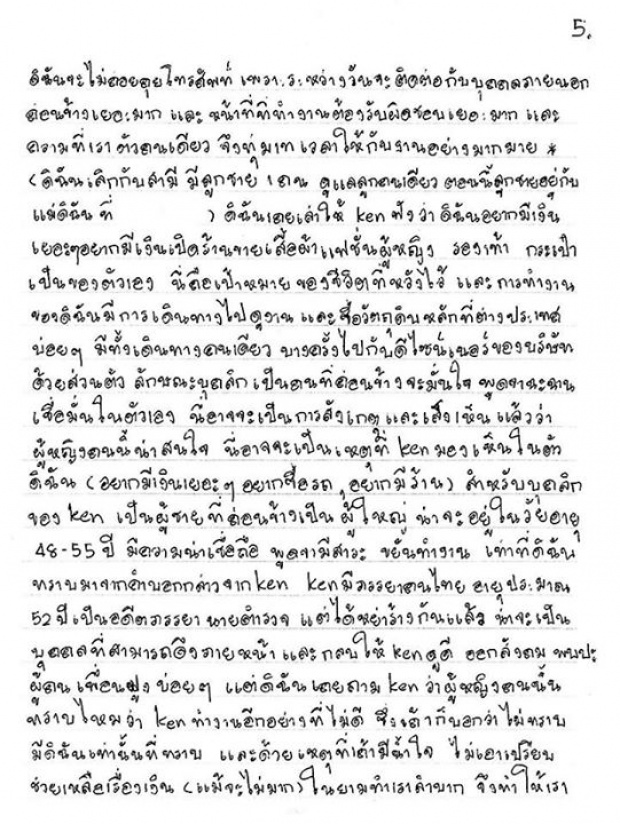 5.
ดิฉันจะไม่ค่อยคุยโทรศัพท์ เพราะระหว่างวันจะติดต่อกับบุคคลภายนอก
ค่อนข้างเยอะมาก และ หน้าที่ที่ทำงานต้องรับผิดชอบเยอะมาก และ
ความที่เราตัวคนเดียว จึงทุ่มเทเวลาให้กับงานอย่างมากมาย *
(ดิฉันเลิกกับสามี มีลูกชาย 1 คน ดูแลลูกคนเดียว ตอนนี้ลูกชายอยู่กับ
แม่ดิฉัน ที่ ) ดิฉันเคยเล่าให้ ken ฟังว่า ดิฉันอยากมีเงิน
เยอะๆอยากมีเงินเปิดร้านขายเสื้อผ้าแฟชั่นผู้หญิง รองเท้า กระเป๋า
เป็นของตัวเอง นี่คือเป้าหมายของชีวิตที่หวังไว้ และการทำงาน
ของดิฉันมีการเดินทางไปดูงาน และซื้อวัตถุดิบหลักที่ต่างประเทศ
บ่อยๆ มีทั้งเดินทางคนเดียว บางครั้งไปกับดีไซน์เนอร์ของบริษัท
ด้วยส่วนตัว ลักษณะบุคลิก เป็นคนที่ค่อนข้างจะมั่นใจ พูดจาฉะฉาน
เชื่อมั่นในตัวเอง นี่อาจจะเป็นการสังเกตุและเล็งเห็นแล้วว่า
ผู้หญิงคนนี้น่าสนใจ นี่อาจจะเป็นเหตุที่ ken มองเห็นในตัว
ดิฉัน (อยากมีเงินเยอะๆ อยากซื้อรถ, อยากมีร้าน) สำหรับบุคลิก
ของ ken เป็นผู้ชายที่ค่อนข้างเป็นผู้ใหญ่ น่าจะอยู่ในวัยอายุ
48-55 ปี มีความน่าเชื่อถือ พูดจามีสาระ ขยันทำงาน เท่าที่ดิฉัน
ทราบมาจากคำบอกกล่าวจาก ken ken มีภรรยาคนไทย อายุประมาณ
52 ปี เป็นอดีตภรรยานายตำรวจ แต่ได้หย่าร้างกันแล้ว น่าจะเป็น
บุคคลที่สามารถดึงภายหน้า และกลบให้ ken ดูดี ออกสังคม พบปะ
ผู้คน เพื่อนฝูงบ่อยๆ แต่ดิฉันเคยถาม ken ว่าผู้หญิงคนนั้น
ทราบไหมว่า ken ทำงานอีกอย่างที่ไม่ดี ซึ่งเค้าก็บอกว่าไม่ทราบ
มีดิฉันเท่านั้นที่ทราบ และด้วยเหตุที่เค้ามีน้ำใจ ไม่เอาเปรียบ
ช่วยเหลือเรื่องเงิน (แม้จะไม่มาก) ในยามที่เราลำบาก จึงทำให้เรา